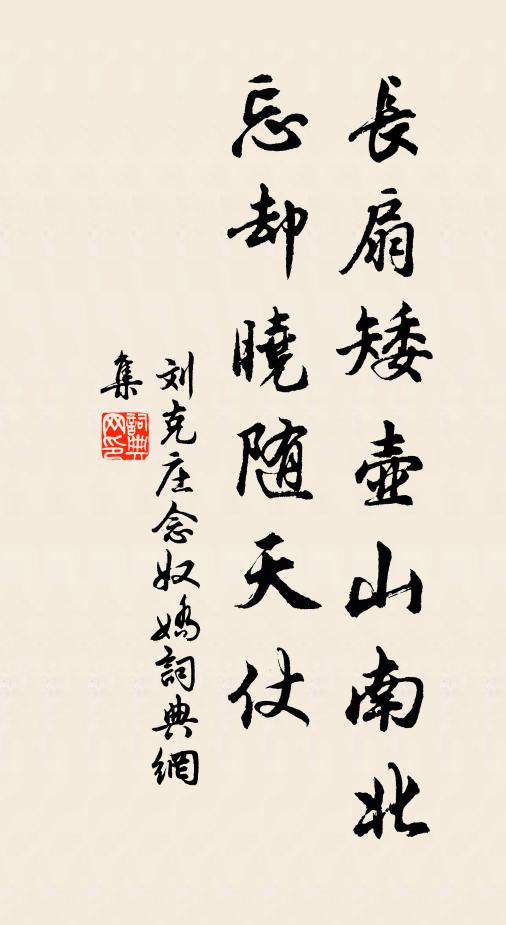 長扇矮壺山南北
忘却曉随天仗
刘克庄念奴嬌詞典網
集
詞典
网印